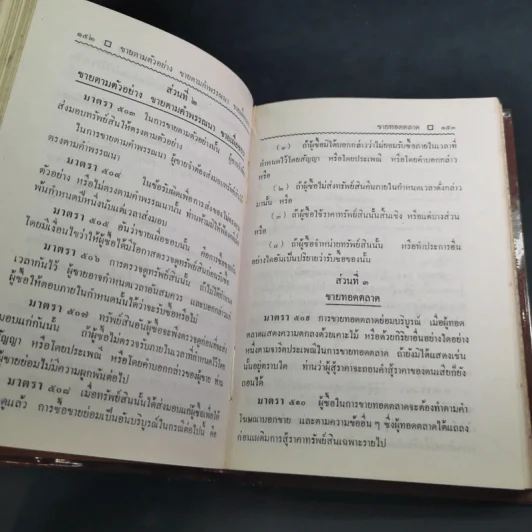 ๑๕๒ ขายตามตัวอย่าง ขายตามคำพรรณนา
ส่วนที่ ๒
ขายตามตัวอย่าง ขายตามคำพรรณนา ขายเผื่อชอบ
มาตรา ๕๐๓ ในการขายตามตัวอย่างนั้น
ส่งมอบทรัพย์สินให้ตรงตามตัวอย่าง
ในการขายตามคำพรรณนา ผู้ขายจำต้องส่งมอบทรัพย์สินให้
ตรงตามคำพรรณนา
มาตรา ๕๐๔ ในข้อรับผิดเพื่อการส่งของไม่ตรงตาม
ตัวอย่าง หรือไม่ตรงตามคำพรรณนานั้น ท่านห้ามมิให้ฟ้องคดีเมื่อ
พ้นกำหนดปีหนึ่งนับแต่เวลาส่งมอบ
มาตรา ๕๐๕ อันว่าขายเผื่อชอบนั้น คือการซื้อขายกัน
โดยมีเงื่อนไขว่าให้ผู้ซื้อได้มีโอกาสตรวจดูทรัพย์สินก่อนรับซื้อ
มาตรา ๕๐๖ การตรวจดูทรัพย์สินนั้น ถ้าไม่ได้กำหนด
เวลากันไว้ ผู้ขายอาจกำหนดเวลาอันสมควร และบอกกล่าวแก่
ผู้ซื้อให้ตอบภายในกำหนดนั้นได้ว่าจะรับซื้อหรือไม่
มาตรา ๕๐๗ ทรัพย์สินอันผู้ซื้อจะพึงตรวจดูก่อนที่จะส่ง
มอบแก่กันนั้น ถ้าผู้ซื้อไม่ตรวจรับภายในเวลาที่กำหนดไว้โดย
สัญญา หรือโดยประเพณี หรือโดยคำบอกกล่าวของผู้ขาย ท่าน
ว่าผู้ขายย่อมไม่มีความผูกพันต่อไป
มาตรา ๕๐๘ เมื่อทรัพย์สินนั้นได้ส่งมอบแก่ผู้ซื้อเพื่อให้
ตรวจดูแล้ว การซื้อขายย่อมเป็นอันบริบูรณ์ในกรณีต่อไปนี้ คือ
ขายทอดตลาด ๑๕๓
(๑) ถ้าผู้ซื้อมิได้บอกกล่าวว่าไม่ยอมรับซื้อภายในเวลาที่
กำหนดไว้โดยสัญญา หรือโดยประเพณี หรือโดยคำบอกกล่าว
หรือ
(๒) ถ้าผู้ซื้อไม่ส่งทรัพย์สินคืนภายในกำหนดเวลาดังกล่าว
มานั้น หรือ
(๓) ถ้าผู้ซื้อใช้ราคาทรัพย์สินนั้นสิ้นเชิง หรือแต่บางส่วน
หรือ
(๔) ถ้าผู้ซื้อจำหน่ายทรัพย์สินนั้น หรือทำประการอื่น
อย่างใดอันเป็นปริยายว่ารับซื้อของนั้น
ส่วนที่ ๓
ขายทอดตลาด
มาตรา ๕๐๙ การขายทอดตลาดย่อมบริบูรณ์ เมื่อผู้ทอด
ตลาดแสดงความตกลงด้วยเคาะไม้ หรือด้วยกิริยาอื่นอย่างใดอย่าง
หนึ่งตามจารีตประเพณีในการขายทอดตลาด ถ้ายังมิได้แสดงเช่น
นั้นอยู่ตราบใด ท่านว่าผู้สู้ราคาจะถอนคำสู้ราคาของตนเสียก็ยัง
ถอนได้
มาตรา ๕๑๐ ผู้ซื้อในการขายทอดตลาดจะต้องทำตามคำ
โฆษณาบอกขาย และตามความข้ออื่น ๆ ซึ่งผู้ทอดตลาดได้แถลง
ก่อนเผดิมการสู้ราคาทรัพย์สินเฉพาะรายไป